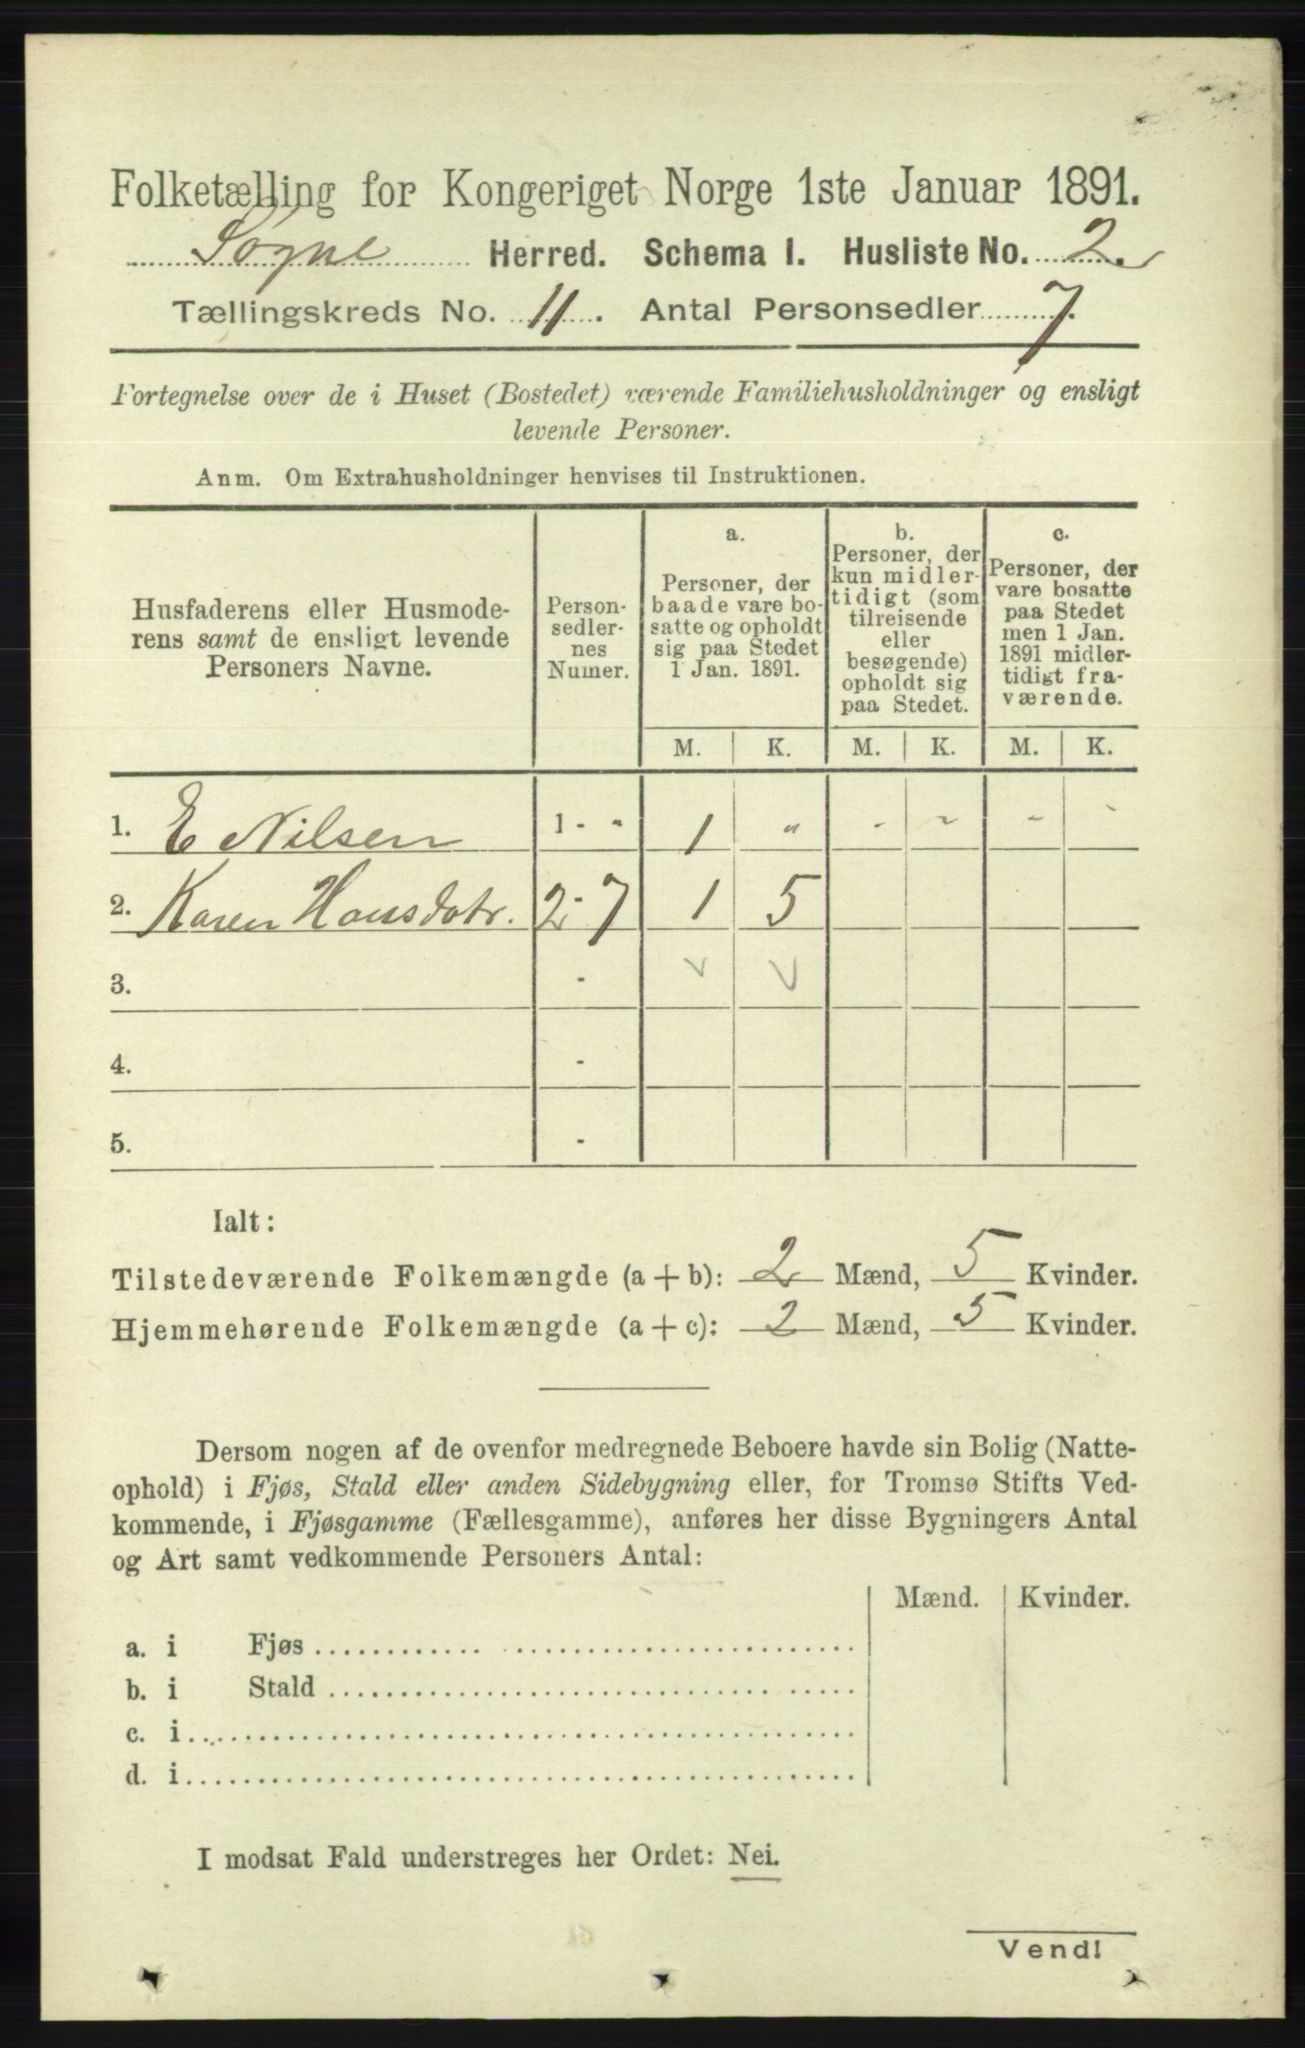 Folketælling for Kongeriget Norge 1ste Januar 1891.
Søgne Herred. Schema I. Husliste No. 2.
Tællingskreds No. 11. Antal Personsedler 7.
Fortegnelse over de i Huset (Bostedet) værende Familiehusholdninger og ensligt
levende Personer.
Anm. Om Extrahusholdninger henvises til Instruktionen.
Husfaderens eller Husmode-
rens samt de ensligt levende
Personers Navne.
Person-
sedler-
nes
Numer.
a.
Personer, der
baade vare bo-
satte og opholdt
sig paa Stedet
1 Jan. 1891.
b.
Personer, der
kun midler-
tidigt (som
tilreisende
eller
besøgende)
opholdt sig
paa Stedet.
c.
Personer, der
vare bosatte
paa Stedet
men 1 Jan.
1891 midler-
tidigt fra-
værende.
M. K. M. K. M. K.
1. E Nilsen 1 - " 1 " - ~ - -
2. Karen Hansdatr. 2 - 7 1 5
3. -
4. -
5. -
Ialt:
Tilstedeværende Folkemængde (a + b): 2 Mænd, 5 Kvinder.
Hjemmehørende Folkemængde (a + c): 2 Mænd, 5 Kvinder.
Dersom nogen af de ovenfor medregnede Beboere havde sin Bolig (Natte-
ophold) i Fjøs, Stald eller anden Sidebygning eller, for Tromsø Stifts Ved-
kommende, i Fjøsgamme (Fællesgamme), anføres her disse Bygningers Antal
og Art samt vedkommende Personers Antal:
Mænd. Kvinder.
a. i Fjøs
b. i Stald
c. i
d. i
I modsat Fald understreges her Ordet: Nei.
Vend!